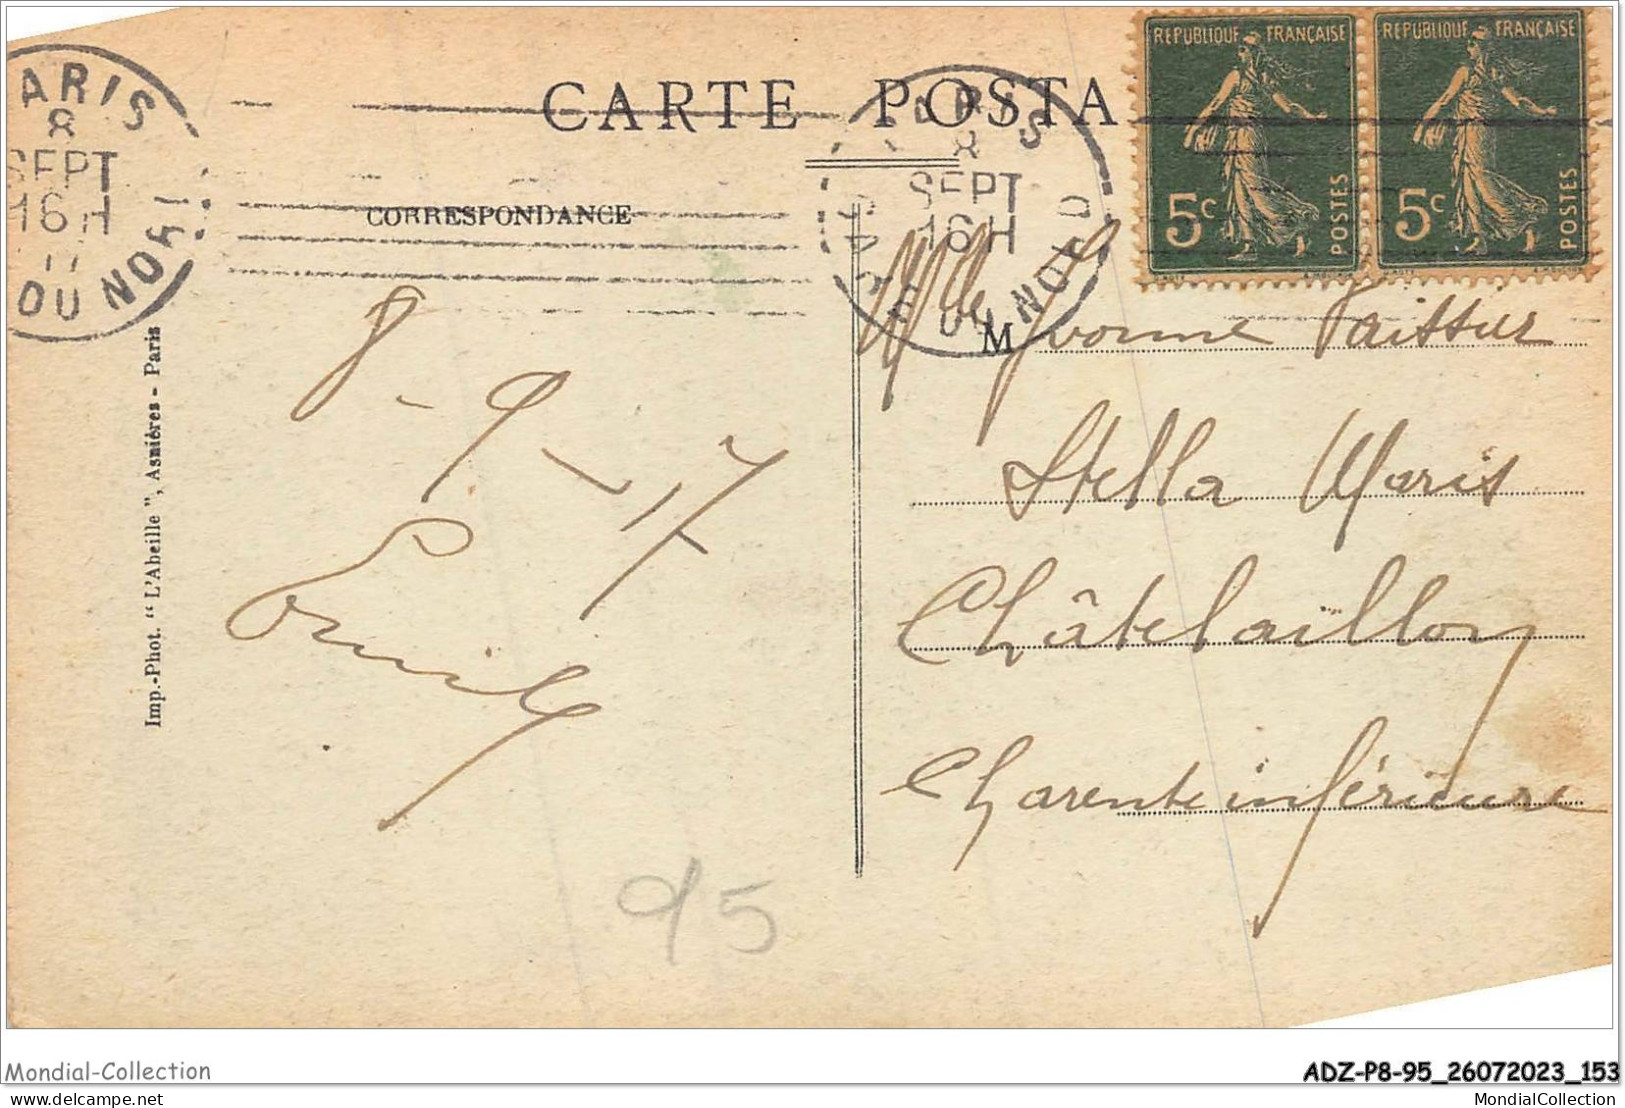 CARTE POSTA
RÉPUBLIQUE FRANÇAISE
5c POSTES
RÉPUBLIQUE FRANÇAISE
5c POSTES
ARIS
8
SEPT
16 H
17
DU NORD
ARIS
8
SEPT
16 H
DU NORD
CORRESPONDANCE
M
Mlle Yvonne
Stella Maris
Châtelaillon
Charente inférieure
8-9-17
Imp.-Phot. "L'Abeille", Asnières - Paris
95
Mondial-Collection
ADZ-P8-95_26072023_153
delcampe.net
MondialCollection